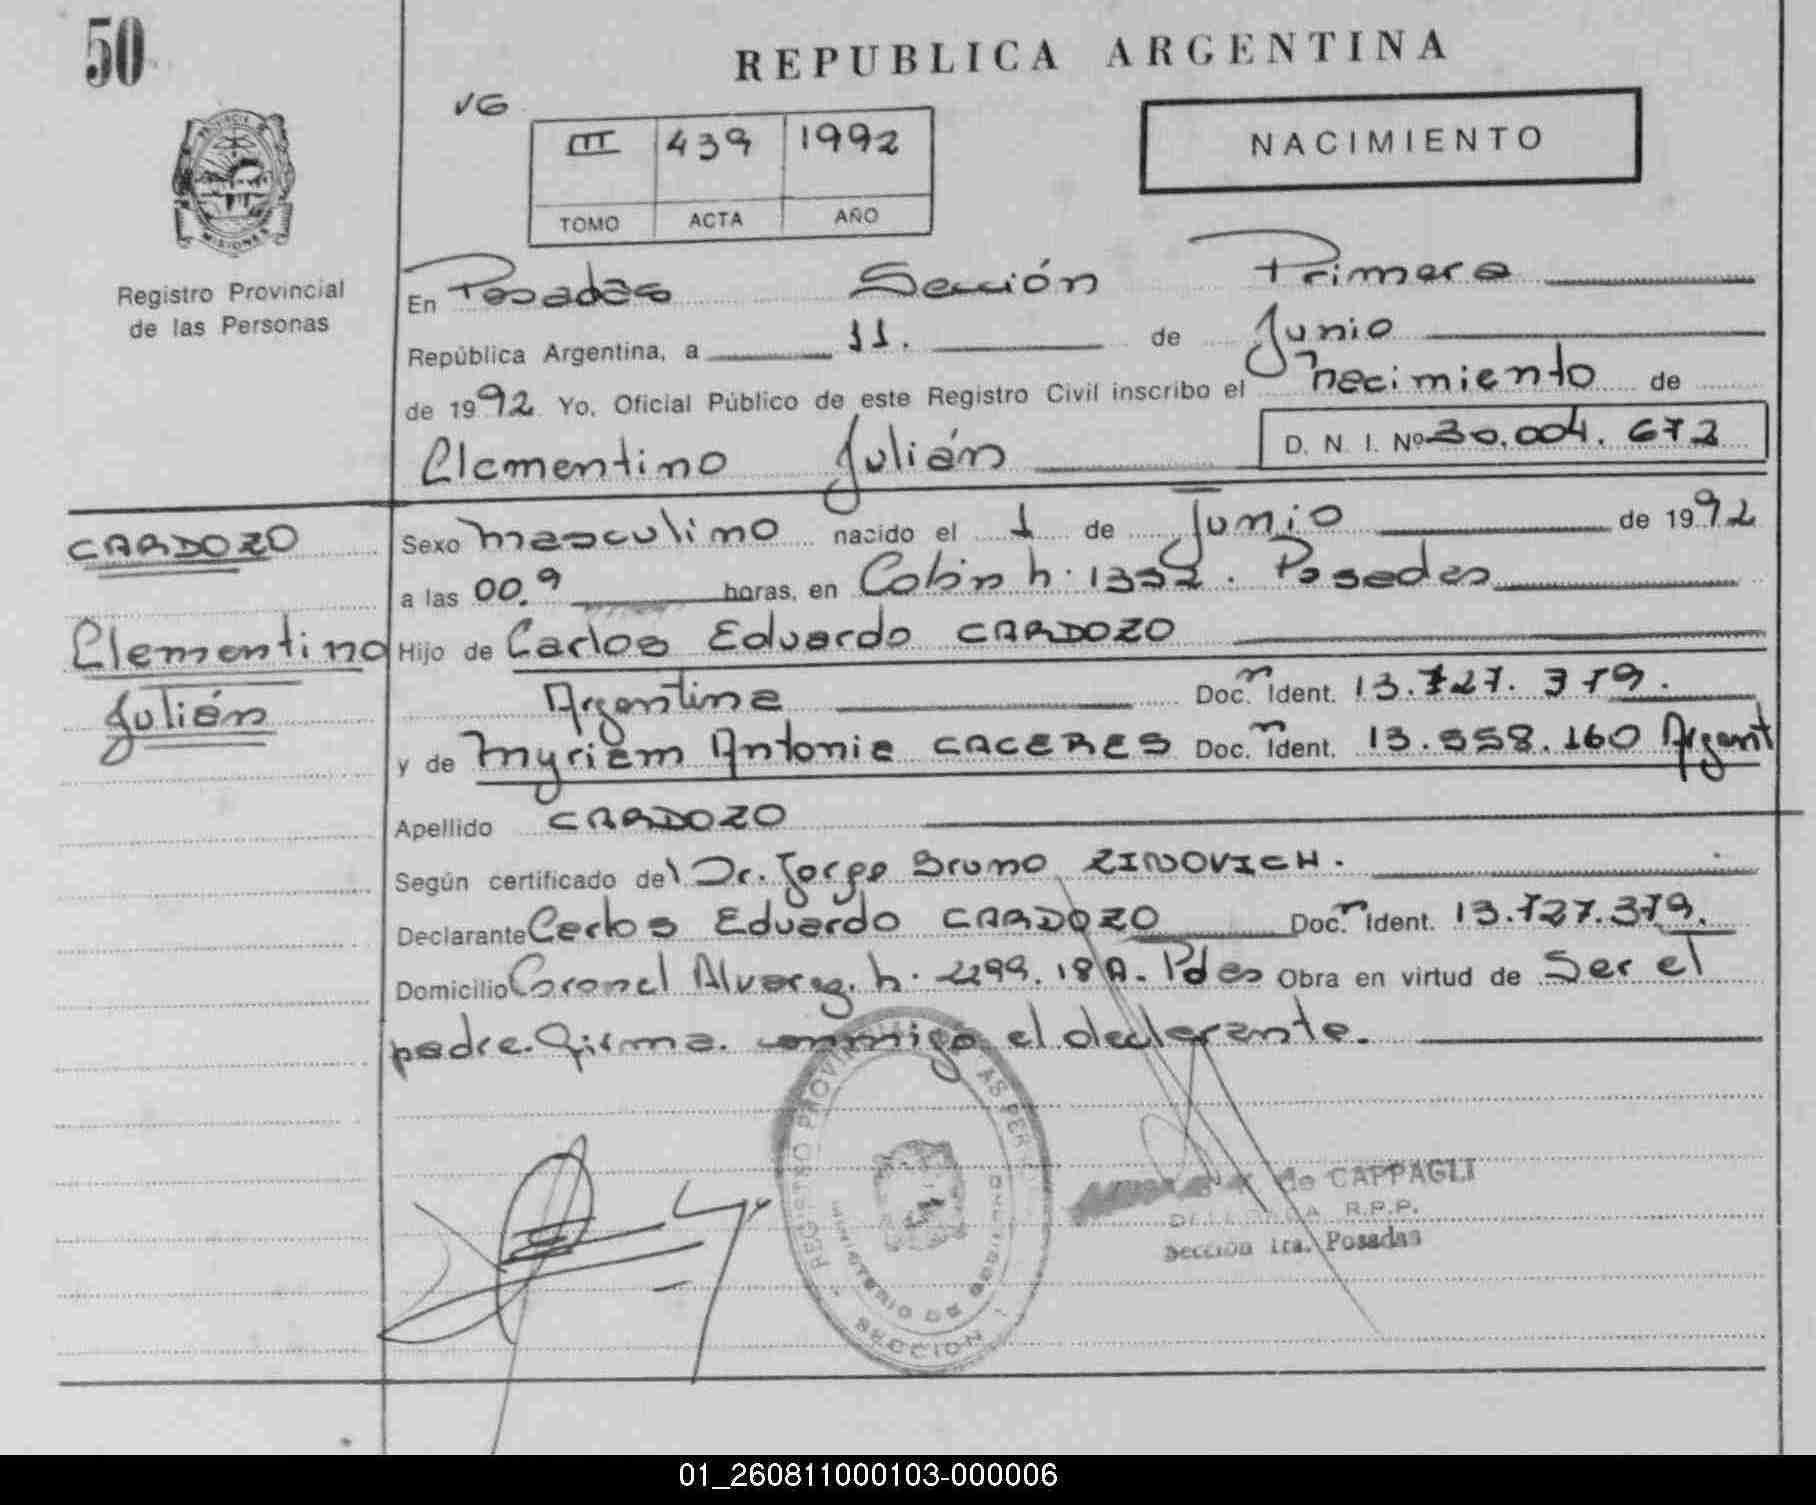 50
REPUBLICA ARGENTINA
VG
III 439 1992
TOMO ACTA AÑO
NACIMIENTO
PROVINCIA
MISIONES
Registro Provincial
de las Personas
En Posadas Sección Primera
República Argentina, a 11. de Junio
de 1992 Yo, Oficial Público de este Registro Civil inscribo el nacimiento de
Clementino Julián D. N. I. Nº 30.004.672
CARDOZO
Clementino
Julián
Sexo masculino nacido el 1 de Junio de 1992
a las 00.9 horas, en Colón n. Posadas
Hijo de Carlos Eduardo CARDOZO
Argentina Doc. Ident. 13.727.379.
y de Myriam Antonia CACERES Doc. Ident. 13.558.160 Argent
Apellido CARDOZO
Según certificado del Dr. Jorge Bruno ZINOVICH.
Declarante Carlos Eduardo CARDOZO Doc. Ident. 13.727.379.
Domicilio Coronel Alvarez. n. 2299. 18A. Pdas Obra en virtud de Ser el
padre. Firma conmigo el declarante.
REGISTRO PROVINCIAL
MINISTERIO DE
SECCION
de CAPPAGLI
R.P.P.
Sección 1ra. Posadas
01_260811000103-000006